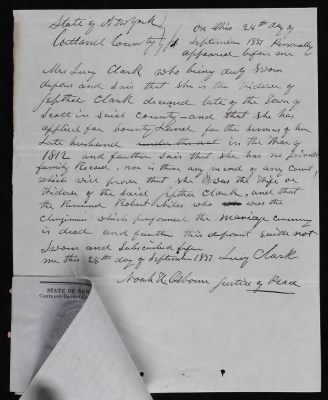 State of New York
Cortland County } ss
On this 24th day of
September 1857 Personally
appeared before me
Mrs Lucy Clark who being duly Sworn
depose and Sais that She is the Widow of
Jepthel Clark deceased late of the Town of
Scott in Said County and that She has
applied for Bounty Land for the Services of her
Late husband in the War of
1812 and further Sais that She has no private
family Record, nor is there any record of any Court,
which will prove that She Was the Wife or
Widow of the Said Jepthel Clark, and that
the Revrend Robert who was the
Clergiman which preformed the Marriage ceremony
is dead and further this deponent Saith not
Sworn and Subscribed before
me this 24th day of September 1857 Lucy Clark
Noah H Osborne Justice of Peace
STATE OF NEW
CORTLAND